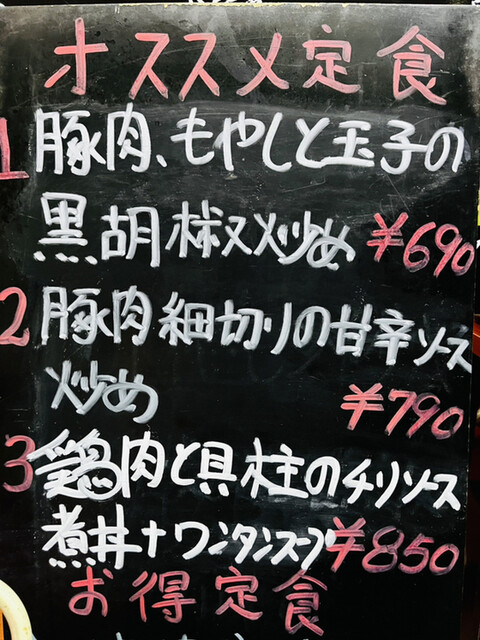 オススメ定食
1 豚肉、もやしと玉子の
黒胡椒炒め ¥690
2 豚肉細切りの甘辛ソース
炒め ¥790
3 鶏肉と具柱のチリソース
煮丼+ワンタンスープ ¥850
お得定食